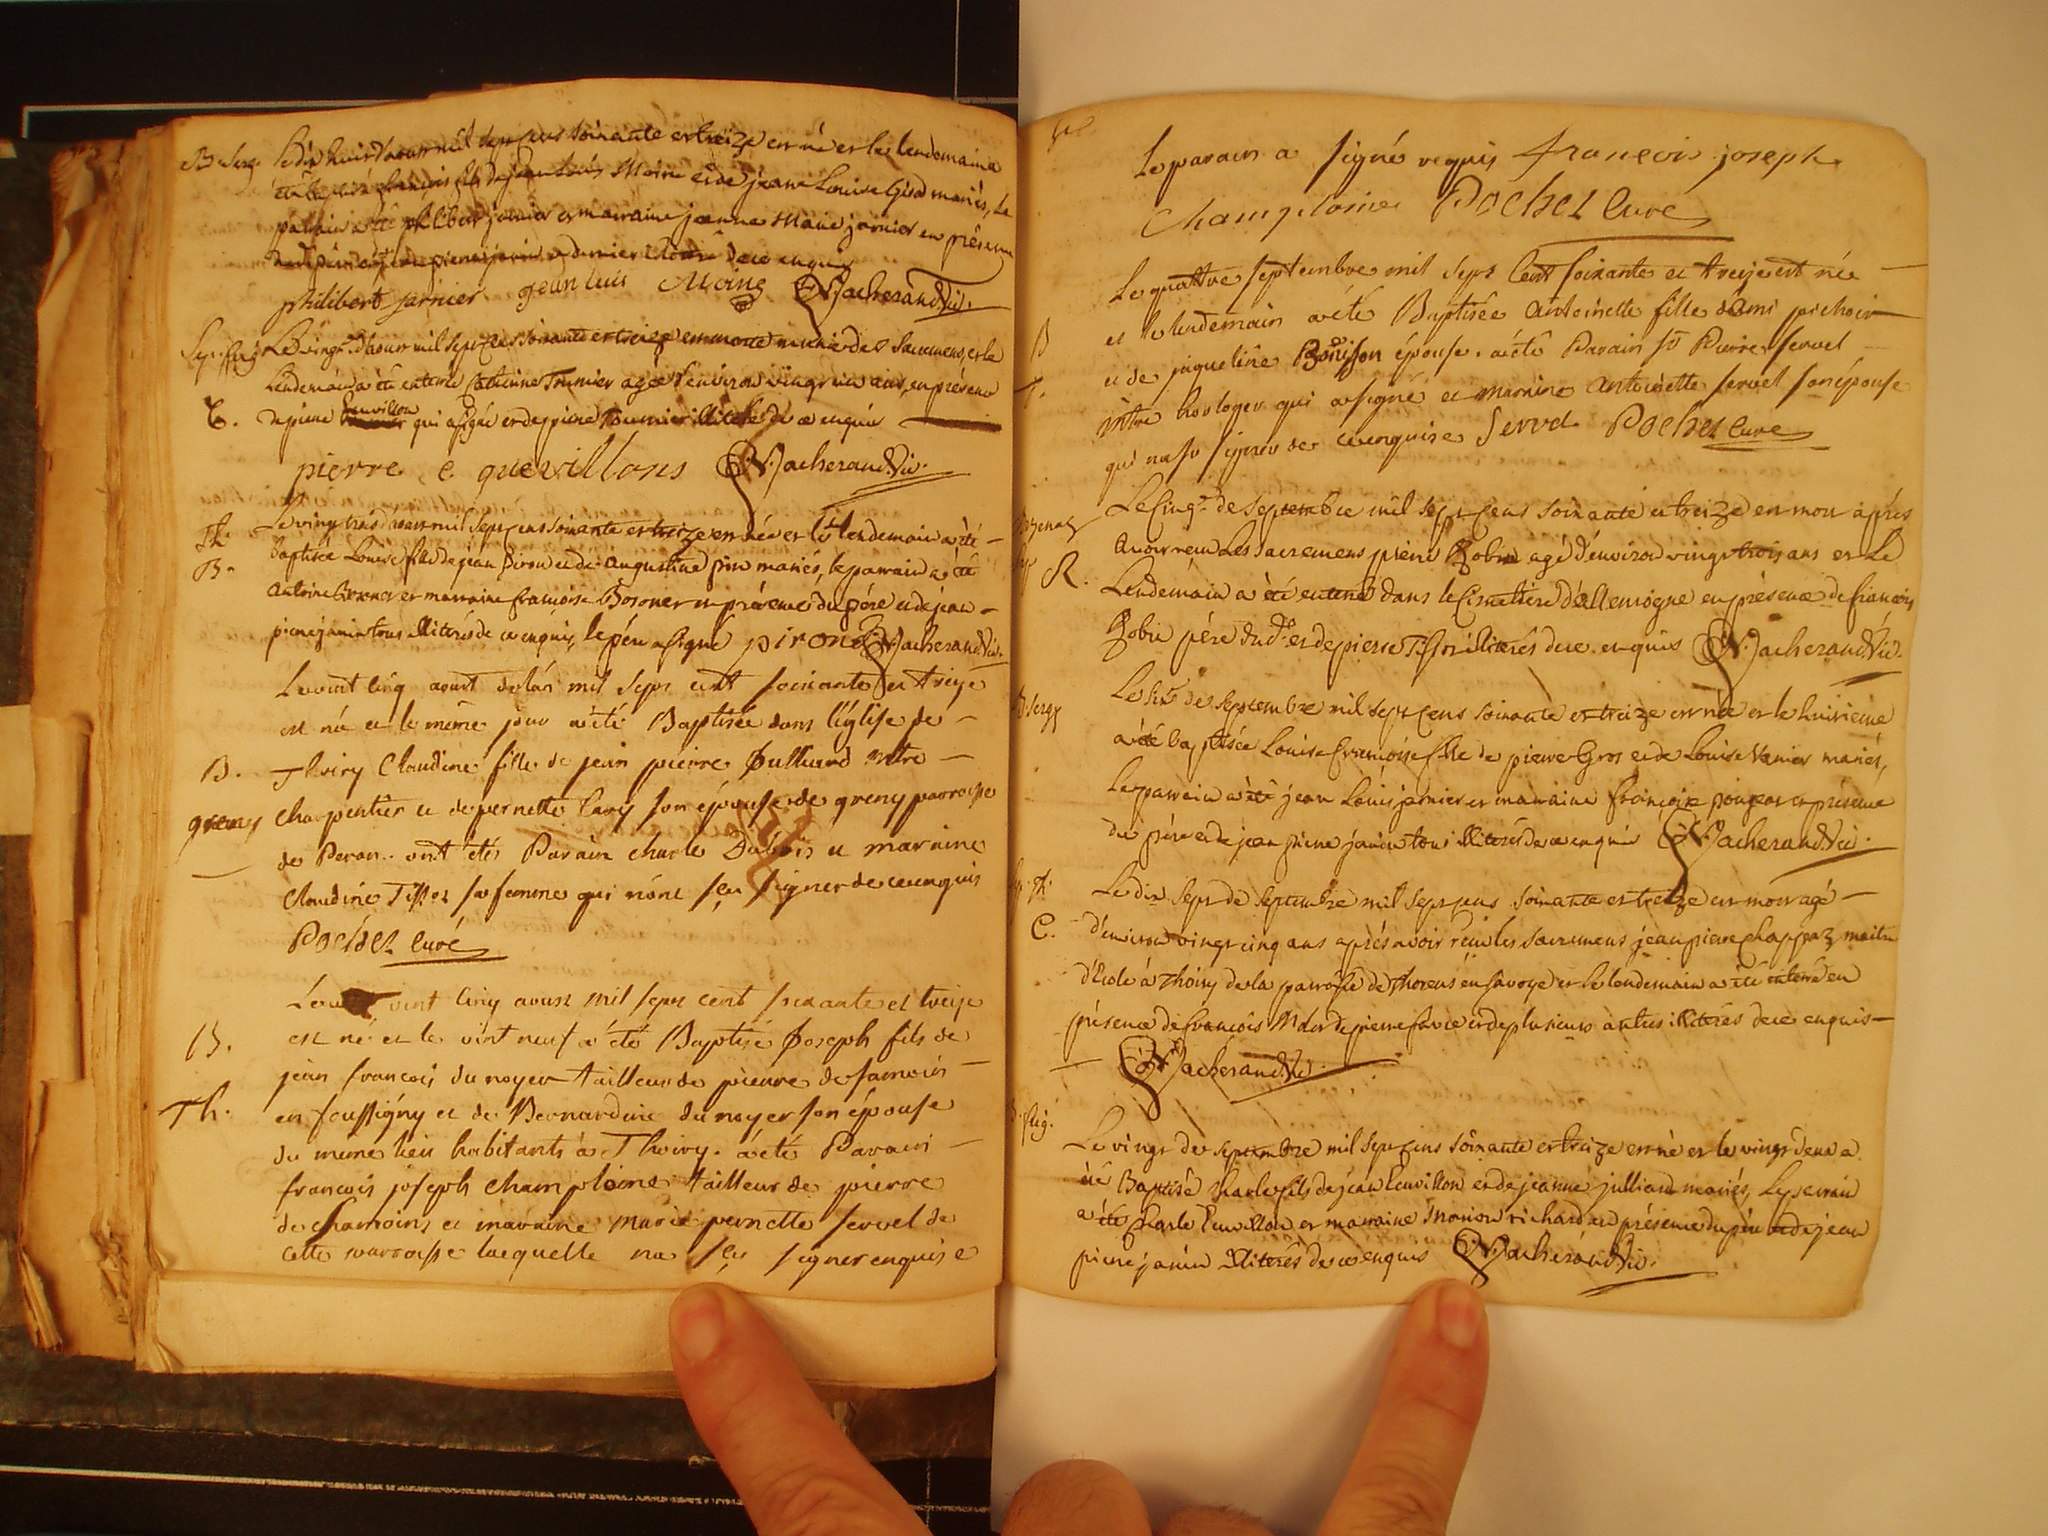 B. Serg. Le dix huit d'aoust mil sept cens soixante et treize est né et le lendemain a
été baptisé françois fils de jean Louis Moine et de jeanne Louise Girod mariés, Le
parrain a été philibert jarnier et marraine jeanne Marie jarnier en présence
du père et de pierre illitéré de ce enquis
philibert jarnier jean luis Moine N. Jacherand Vic.
Sep. flig. Le vingt d'aoust mil sept cens soixante et treize est morte munie des Sacremens, et le
Lendemain a été enterré Catherine Trumier agée d'environ vingt un ans, en présence
C. de pierre quevillon qui a signé et de pierre tournier illitéré de ce enquis
pierre e quevillons N. Jacherand Vic.
Th. Le vingt trois aoust mil sept cens soixante et treize est née et le lendemain a été
B. Baptisée Louise fille de jean Piron et de augustine piru mariés, le parrain a été
antoine et marraine françoise Bosoner en présence du père et de jean
pierre janin tous illiterés de ce enquis, le père a signé piron N. Jacherand Vic.
Le vint cinq aoust de l'an mil sept cent soixante et treize
est née et le même jour a été Baptisée dans l'église de
B. Thoiry Claudine fille de jean pierre Julliard mtre
greny charpentier et de pernette Caris son épouse de greny parroisse
de Peron. ont étés Parain charle Dubois et maraine
Claudine Tissot sa femme qui n'ont sçu signer de ce enquis
Pochet Curé
Le vint cinq aoust mil sept cent soixante et treize
B. est né et le vint neuf a été Baptisé Joseph fils de
jean francois dunoyer tailleur de pierre de samoin
Th. en foussigny et de Bernardine dunoyer son épouse
du même lieu habitants à Thoiry. a été Parain
francois joseph champlaine tailleur de pierre
de samoins et maraine marie pernette servel de
cette parroisse laquelle na sçu signer enquise
Le parain a signé requis francois joseph
Champlaine Pochet Curé
Le quattre septembre mil sept Cent soixante et treize est née
B et le lendemain a été Baptisée antoinette fille dami pichoir
et de jaqueline Bouisson épouse. a été Parain sr Pierre servel
T. mtre horloger qui a signé et maraine antoinette servel son épouse
qui na su signer de ce enquise Servel Pochet Curé
Le Cinqe. de septembre mil sept cens soixante et treize est mort après
avoir recu Les sacremens pierre Robin agé d'environ vingt trois ans et Le
R. Lendemain a été enterré dans le Cimetière d'allemogne en présence de francois
Robin père du dt. et de pierre Tissot illiterés de ce enquis N. Jacherand Vic.
B. Sergy Le six de septembre mil sept cens soixante et treize est née et le huitieme
a été baptisée Louise francoise fille de pierre Gros et de Louise Vernier mariés,
Le parrain a été jean Louis jarnier et marraine françoise pougeat en présence
du père et de jean pierre janin tous illiterés de ce enquis N. Jacherand Vic.
Th. Le dix sept de septembre mil sept cens soixante et treize est mort agé
C. d'environ vingt cinq ans après avoir recu les sacremens jean pierre Chappaz maitre
d'Ecole à Thoiry de la paroisse de Thorens en savoye et le lendemain a été enterré en
présence de francois et de pierre favre et de plusieurs autres illiterés de ce enquis
N. Jacherand Vic.
flig. Le vingt de septembre mil sept cens soixante et treize est né et le vingt deux a
été Baptisé Charle fils de jean Cuvillon et de jeanne julliard mariés, Le parrain
a été Charle Cuvillon et marraine Manon richard en présence du père et de jean
pierre janin illiterés de ce enquis N. Jacherand Vic.